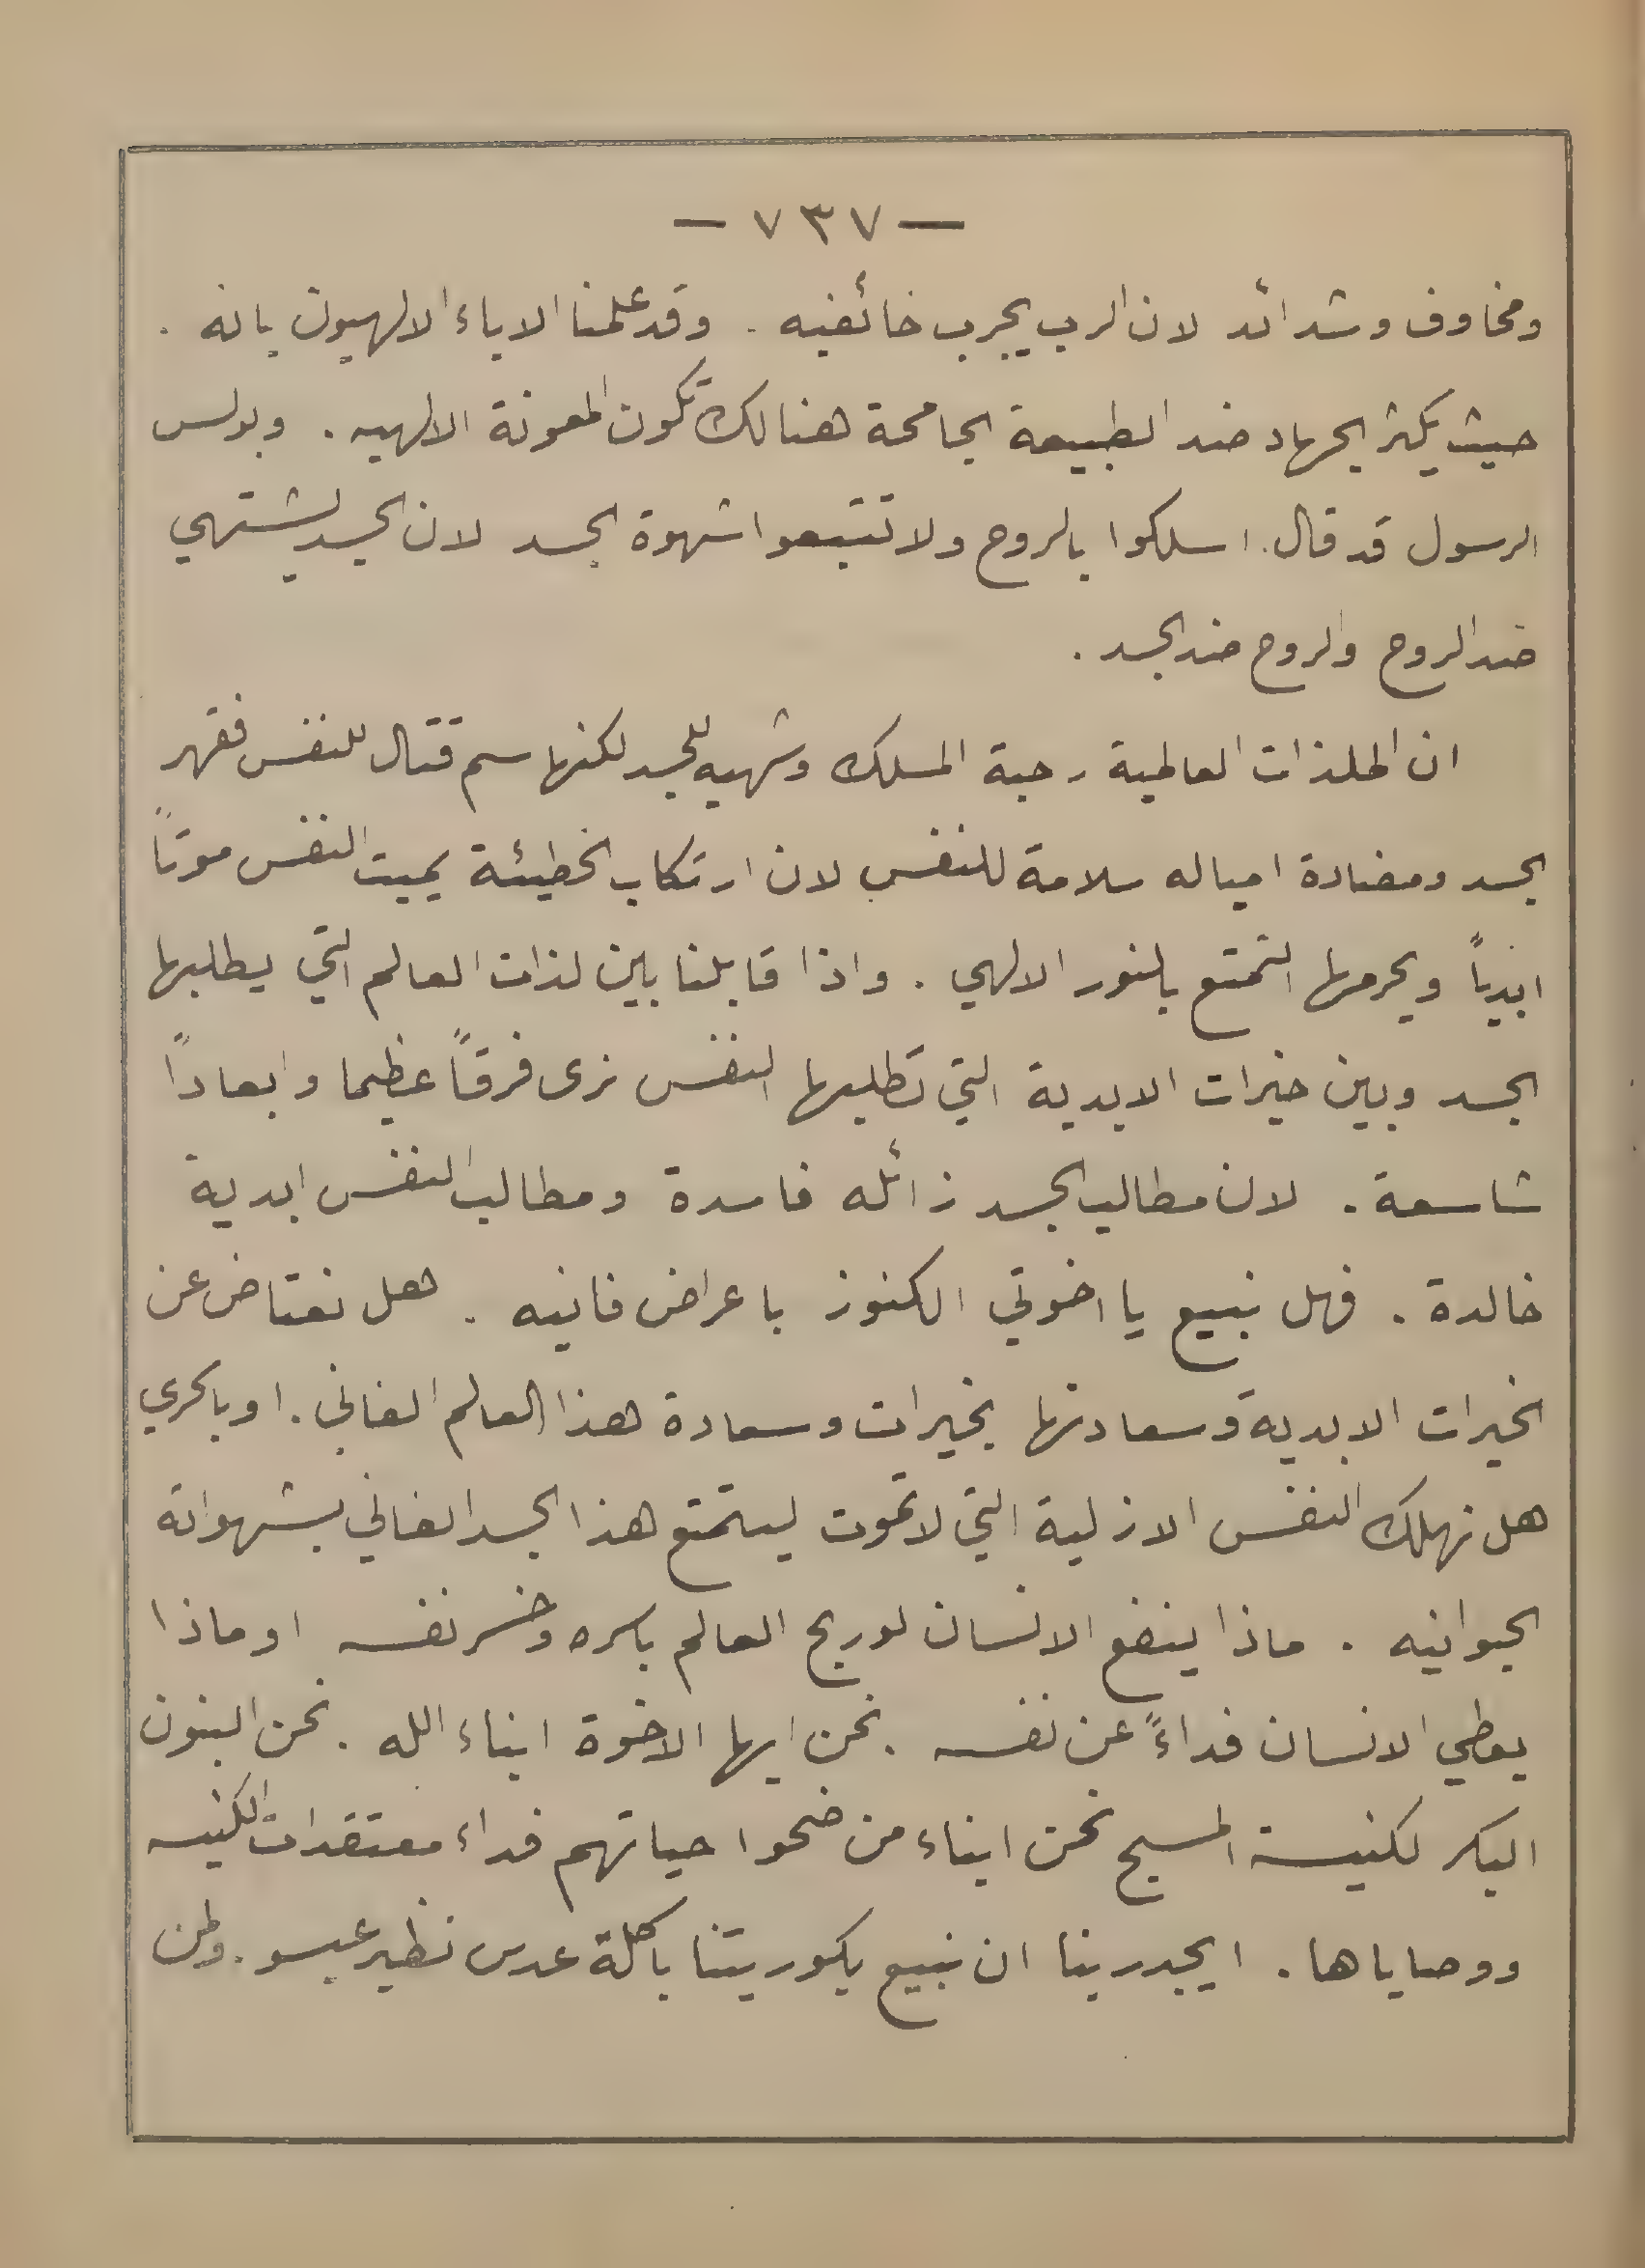 — ٧٣٧ —
ومخاوف وشدائد لان الرب يجرب خائفيه . وقد علمنا الاباء الالهيون بانه .
حيث يكثر الجهاد ضد الطبيعة الجامحة هنالك تكون المعونة الالهيه . وبولس
الرسول قد قال . اسلكوا بالروح ولا تتبعوا شهوة الجسد لان الجسد يشتهي
ضد الروح والروح ضد الجسد .
ان الملذات العالمية رحبة المسلك وشهيه للجسد لكنها سم قتال للنفس فقهر
الجسد ومضادة امياله سلامة للنفس لان ارتكاب الخطيئة يميت النفس موتاً
ابدياً ويحرمها التمتع بالنور الالهي . واذا قابلنا بين لذات العالم التي يطلبها
الجسد وبين خيرات الابدية التي تطلبها النفس نرى فرقاً عظيما وابعاداً
شاسعة . لان مطاليب الجسد زائله فاسدة ومطاليب النفس ابدية
خالدة . فهل نبيع يا اخوتي الكنوز باعراض فانيه . هل نعتاض عن
الخيرات الابدية وسعادتها بخيرات وسعادة هذا العالم الفاني . او بالحري
هل نهلك النفس الازلية التي لا تموت ليتمتع هذا الجسد الفاني بشهواته
الحيوانيه . ماذا ينفع الانسان لو ربح العالم باسره وخسر نفسه او ماذا
يعطي الانسان فداءً عن نفسه . نحن ايها الاخوة ابناء الله . نحن البنون
البكر لكنيسة المسيح نحن ابناء من ضحوا حياتهم فداء معتقدات الكنيسه
ووصاياها . ايجدر بنا ان نبيع بكوريتنا باكلة عدس نظير عيسو . ولمن